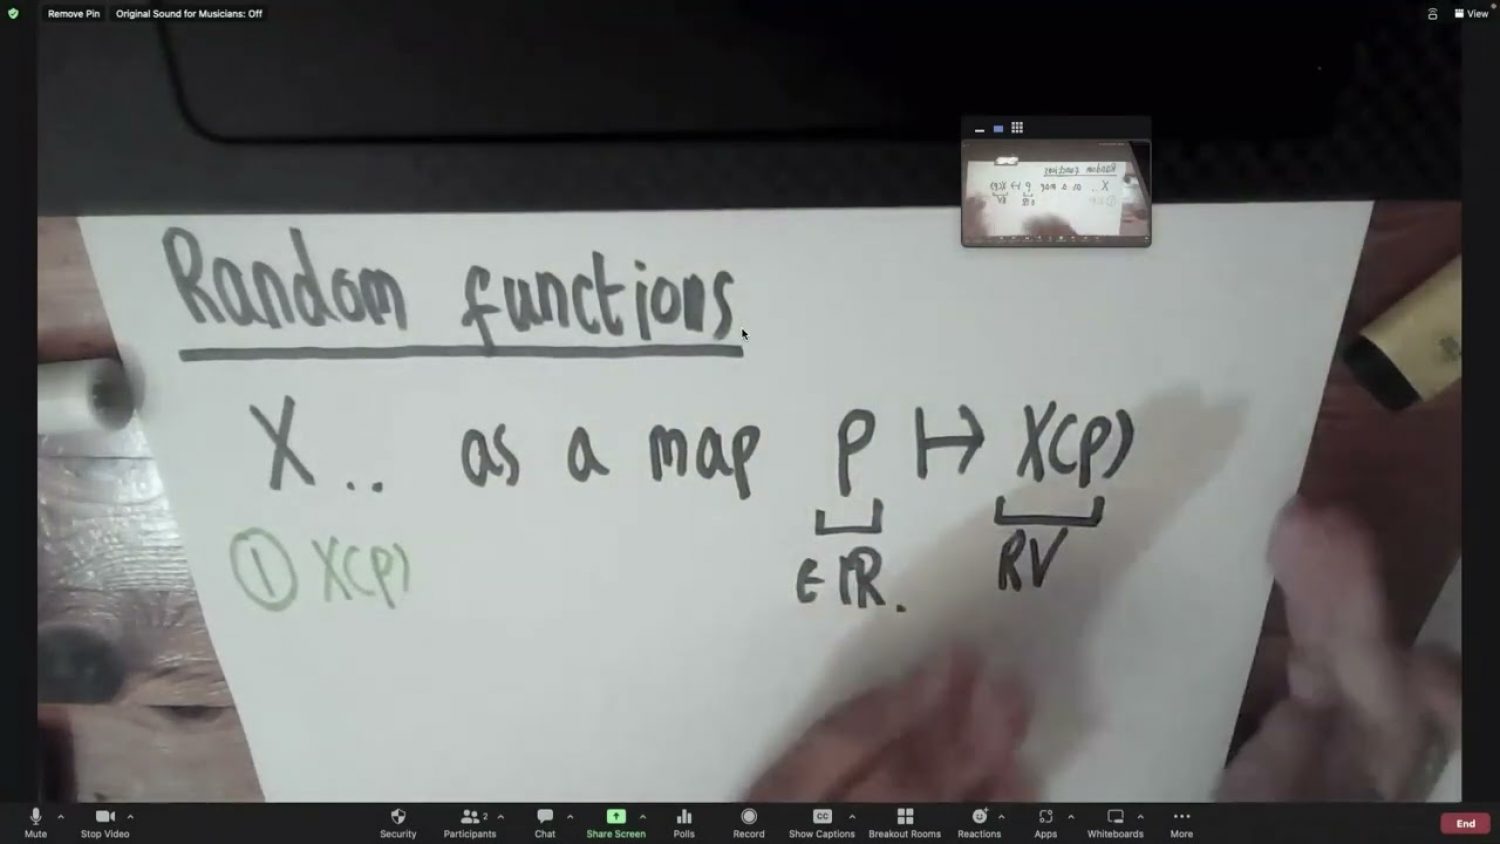 Remove Pin Original Sound for Musicians: Off View
Random functions
X.. as a map p ↦ X(p)
① X(p) ∈ ℝ. RV
Mute Stop Video Security Participants 2 Chat Share Screen Polls Record CC Show Captions Breakout Rooms Reactions Apps Whiteboards More End